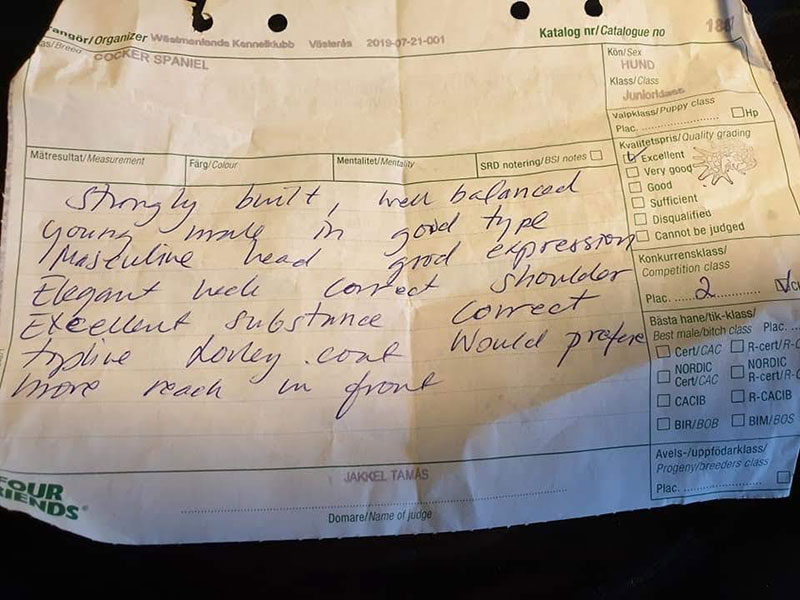 angör/Organizer Västmanlands Kennelklubb Västerås 2019-07-21-001
Katalog nr/Catalogue no
as/Breed COCKER SPANIEL
Kön/Sex
HUND
Klass/Class
Juniorklass
Valpklass/Puppy class
Plac. Hp
Mätresultat/Measurement Färg/Colour Mentalitet/Mentality SRD notering/BSI notes
Kvalitetspris/Quality grading
Excellent
Very good
Good
Sufficient
Disqualified
Cannot be judged
Strongly built, well balanced
young male in good type
Masculine head good expression
Elegant neck correct shoulder
Excellent substance correct
topline Lovley coat Would prefere
more reach in front
Konkurrensklass/
Competition class
Plac. 2
Bästa hane/tik-klass/
Best male/bitch class Plac.
Cert/CAC R-cert/R-C
NORDIC Cert/CAC NORDIC R-cert/R-
CACIB R-CACIB
BIR/BOB BIM/BOS
Avels-/uppfödarklass/
Progeny/breeders class
Plac.
FOUR
RIENDS®
JAKKEL TAMÁS
Domare/Name of judge